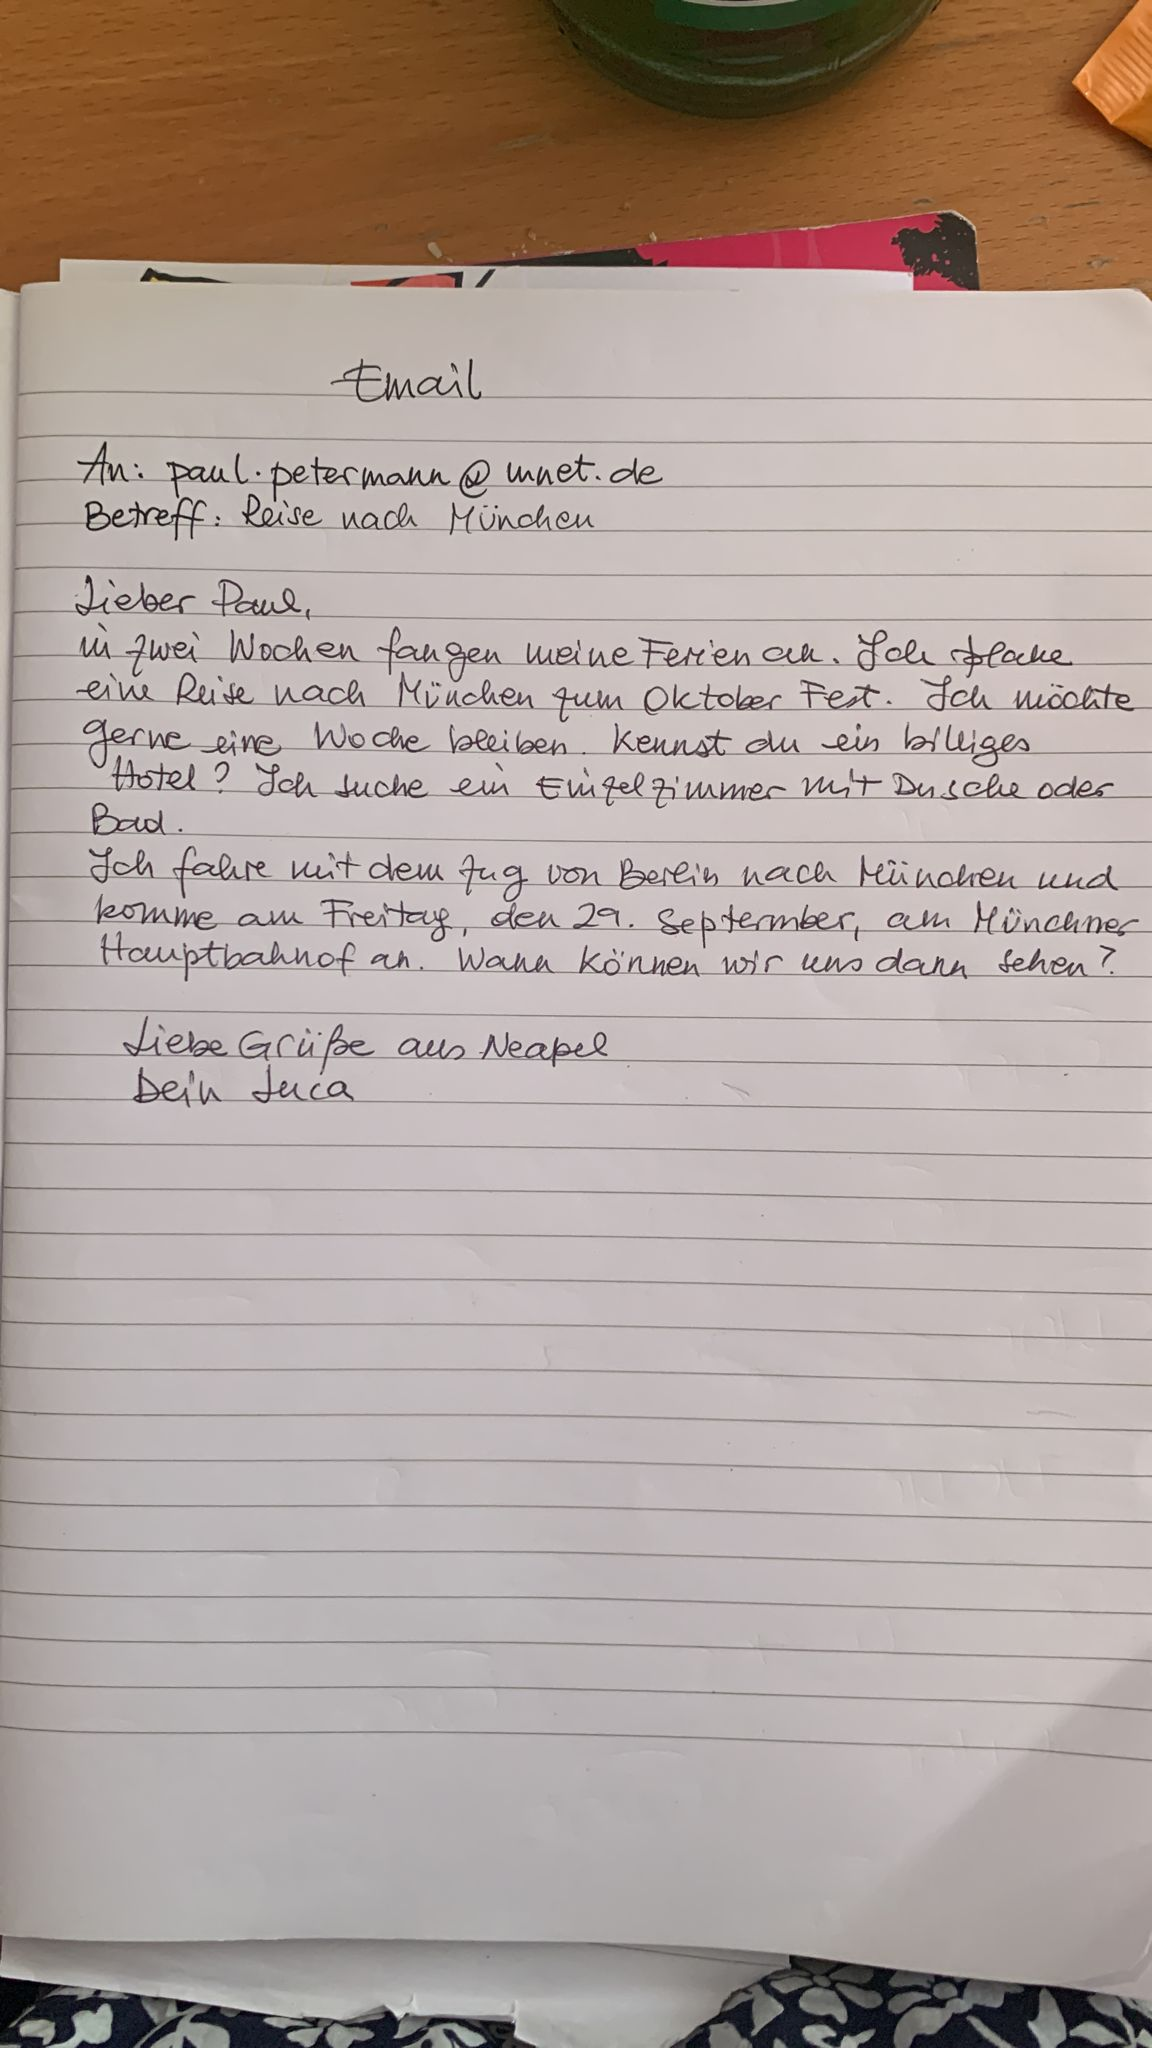 Email
An: paul.petermann@mnet.de
Betreff: Reise nach München
Lieber Paul,
in zwei Wochen fangen meine Ferien an. Ich plane
eine Reise nach München zum Oktober Fest. Ich möchte
gerne eine Woche bleiben. Kennst du ein billiges
Hotel? Ich suche ein Einzelzimmer mit Dusche oder
Bad.
Ich fahre mit dem Zug von Berlin nach München und
komme am Freitag, den 29. Septermber, am Münchner
Hauptbahnhof an. Wann können wir uns dann sehen?
Liebe Grüße aus Neapel
Dein Luca